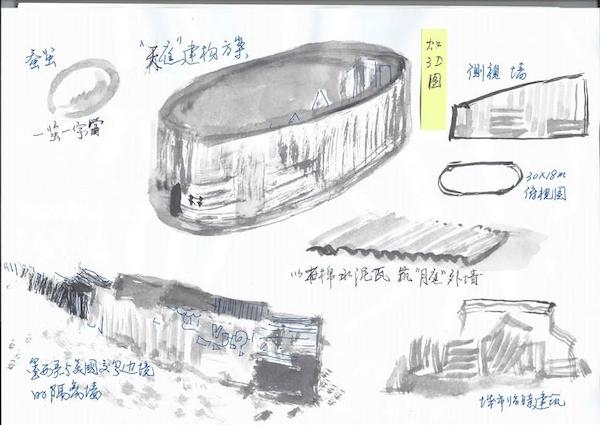 蚕茧
庭”建构方案
加
3D
图
側視 墙
一茧一宇
30×18m
俯視图
以石棉水泥瓦 筑“月庭”外墙
墨西哥与美國交界边境
的隔离墙
城市临時建筑